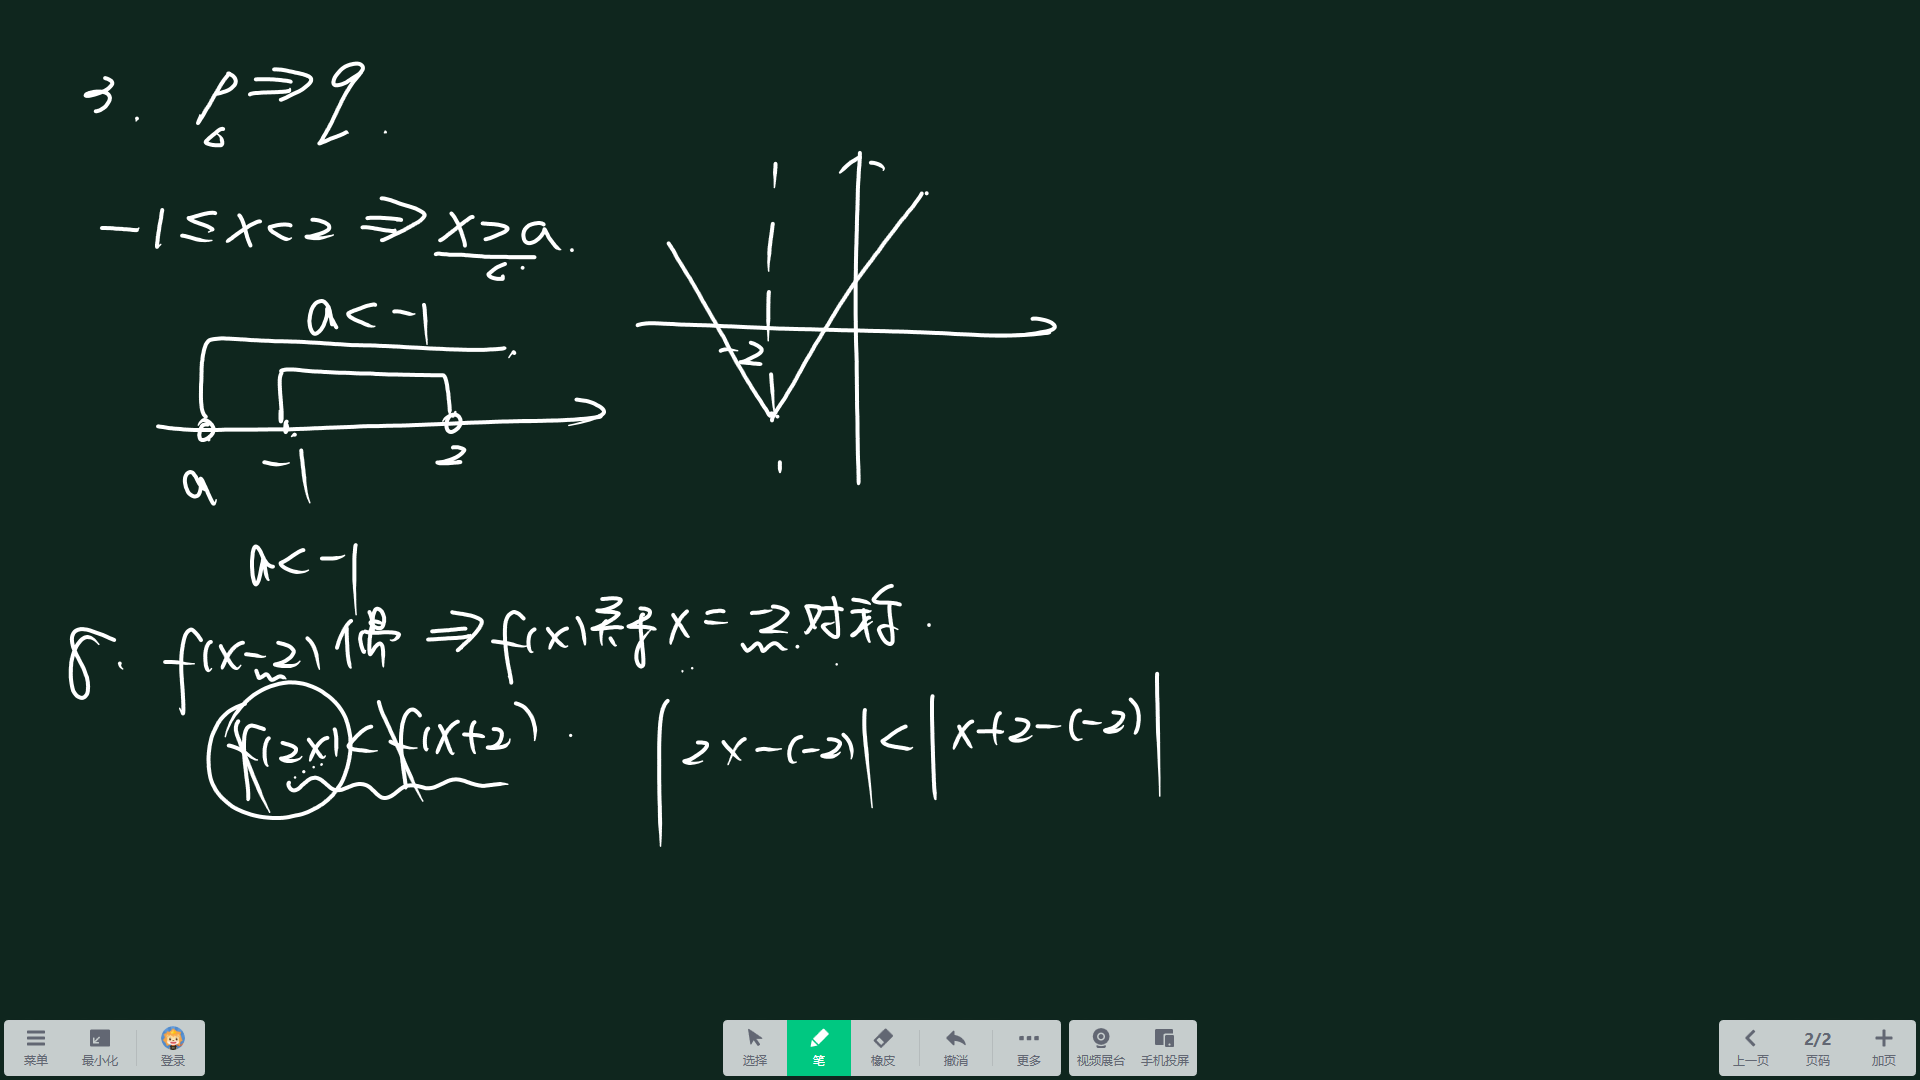 3. p⇒q.
-1≤x<2 ⇒ x>a.
a<-1
-2
a -1 2
a<-1
8. f(x-2)偶 ⇒ f(x)关于x=-2对称.
f(2x)<f(x+2). |2x-(-2)|<|x+2-(-2)|
菜单 最小化 登录 选择 笔 橡皮 撤消 更多 视频展台 手机投屏 上一页 2/2 页码 加页